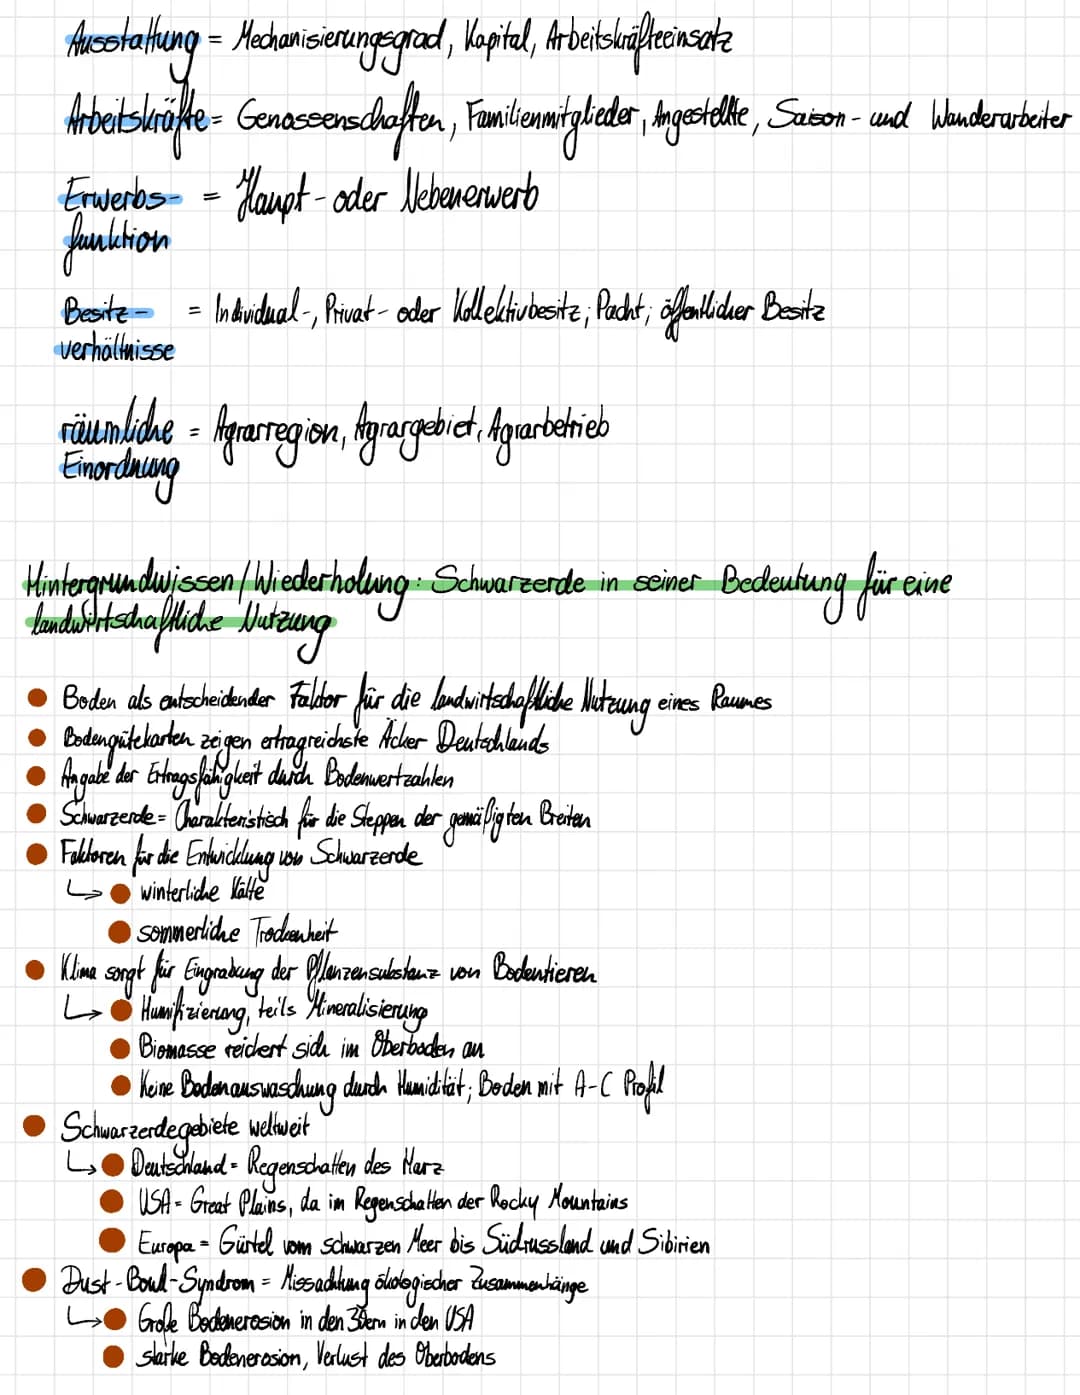 Ausstattung = Mechanisierungsgrad, Kapital, Arbeitskräfteeinsatz
Arbeitskräfte = Genossenschaften, Familienmitglieder, Angestellte, Saison- und Wanderarbeiter
Erwerbs- = Haupt- oder Nebenerwerb
funktion
Besitz- = Individual-, Privat- oder Kollektivbesitz; Pacht; öffentlicher Besitz
verhältnisse
räumliche = Agrarregion, Agrargebiet, Agrarbetrieb
Einordnung
Hintergrundwissen/Wiederholung: Schwarzerde in seiner Bedeutung für eine
landwirtschaftliche Nutzung
● Boden als entscheidender Faktor für die landwirtschaftliche Nutzung eines Raumes
● Bodengütekarten zeigen ertragreichste Äcker Deutschlands
● Angabe der Ertragsfähigkeit durch Bodenwertzahlen
● Schwarzerde = Charakteristisch für die Steppen der gemäßigten Breiten
● Faktoren für die Entwicklung von Schwarzerde
↳ ● winterliche Kälte
● sommerliche Trockenheit
● Klima sorgt für Eingrabung der Pflanzensubstanz von Bodentieren
↳ ● Humifizierung, teils Mineralisierung
● Biomasse reichert sich im Oberboden an
● Keine Bodenauswaschung durch Humidität; Boden mit A-C Profil
● Schwarzerdegebiete weltweit
↳ ● Deutschland = Regenschatten des Harz
● USA = Great Plains, da im Regenschatten der Rocky Mountains
● Europa = Gürtel vom schwarzen Meer bis Südrussland und Sibirien
● Dust-Bowl-Syndrom = Missachtung ökologischer Zusammenhänge
↳ ● Große Bodenerosion in den 30ern in den USA
● starke Bodenerosion, Verlust des Oberbodens